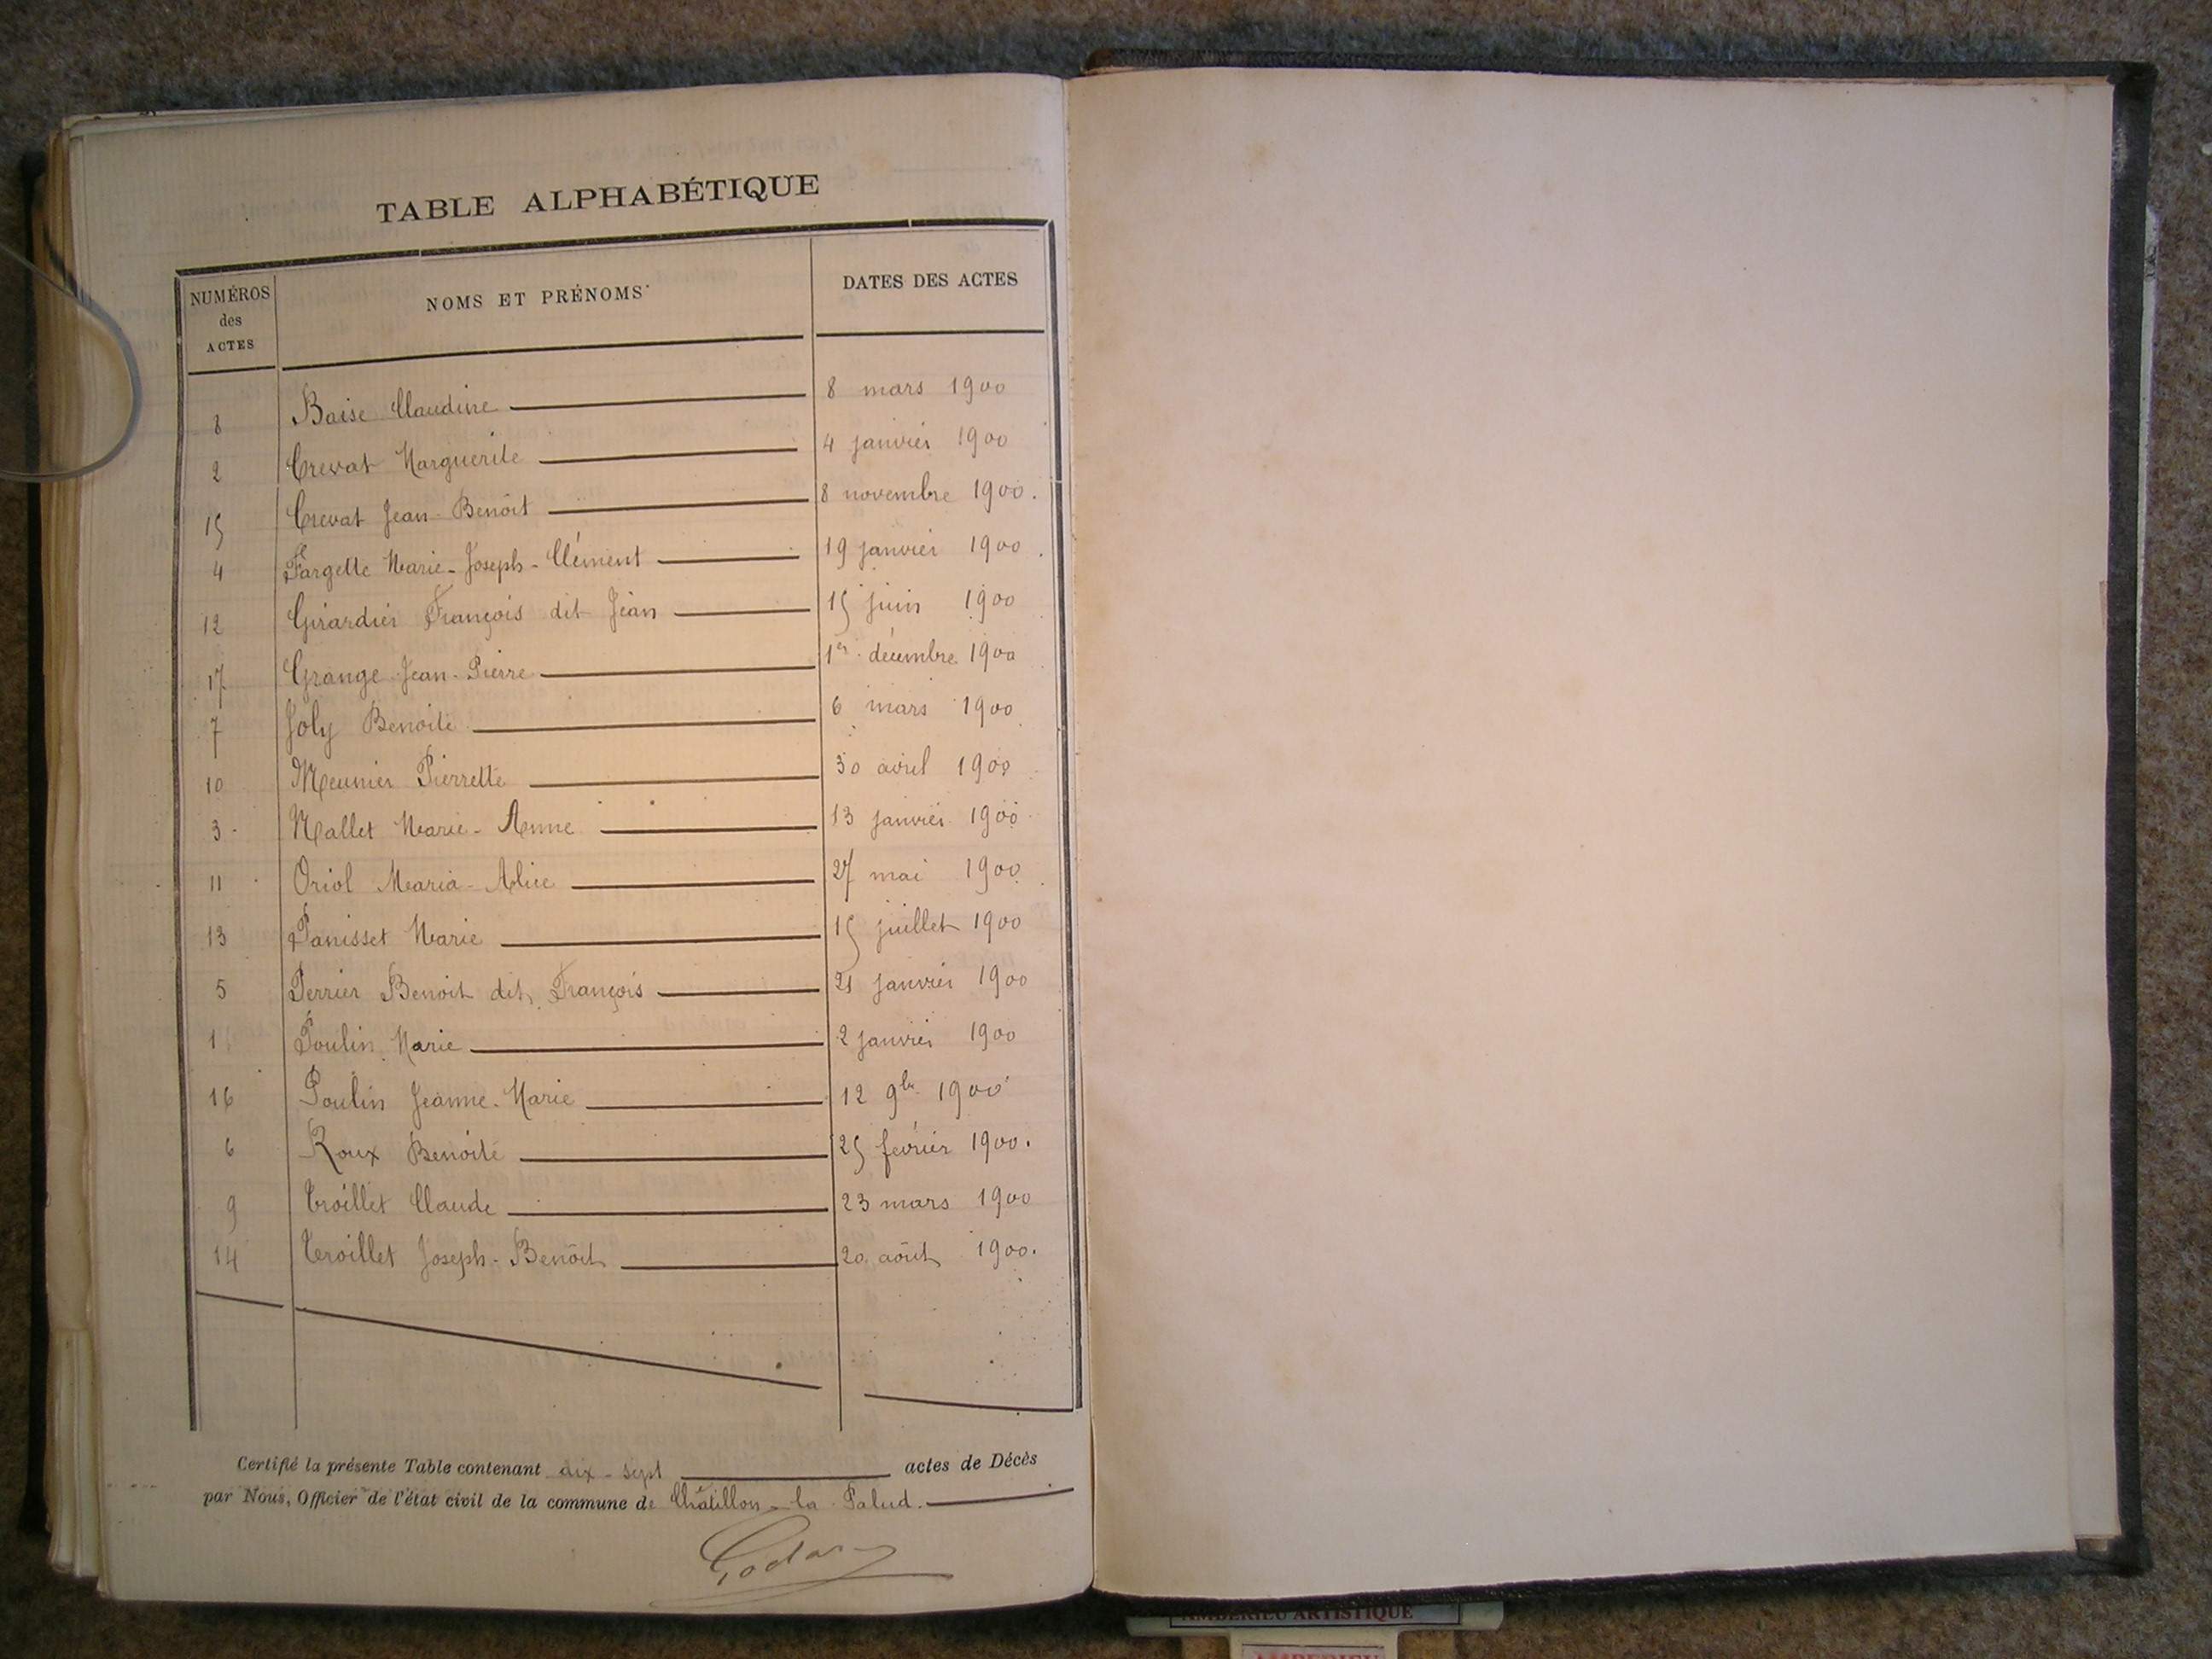 TABLE ALPHABÉTIQUE
NUMÉROS des ACTES NOMS ET PRÉNOMS DATES DES ACTES
8 Baise Claudine 8 mars 1900
2 Crevat Marguerite 4 janvier 1900
15 Crevat Jean-Benoît 8 novembre 1900.
4 Fargette Marie-Joseph-Clément 19 janvier 1900.
12 Girardier François dit Jean 15 juin 1900
17 Grange Jean-Pierre 1er décembre 1900
7 Joly Benoite 6 mars 1900
10 Meunier Pierrette 30 avril 1900
3 Mallet Marie-Anne 13 janvier 1900
11 Oriol Maria-Alice 27 mai 1900
13 Panisset Marie 15 juillet 1900
5 Perrier Benoit dit François 21 janvier 1900
1 Poulin Marie 2 janvier 1900
16 Poulin Jeanne-Marie 12 9bre 1900
6 Roux Benoite 25 février 1900.
9 Troillet Claude 23 mars 1900
14 Troillet Joseph-Benoît 20 août 1900.
Certifié la présente Table contenant dix-sept actes de Décès
par Nous, Officier de l'état civil de la commune de Châtillon-la-Palud.
AMBÉRIEU ARTISTIQUE
AMBERIEU